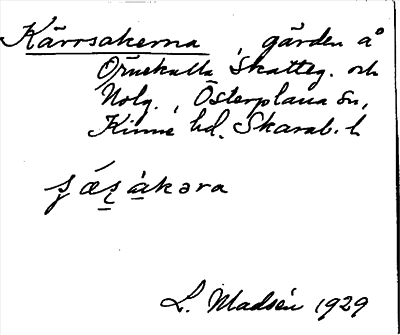 Kärrsakerna, gärden å
Örnekulla Skatteg. och
Nolg., Österplana sn,
Kinne hd. Skarab. l.
L. Madsén 1929